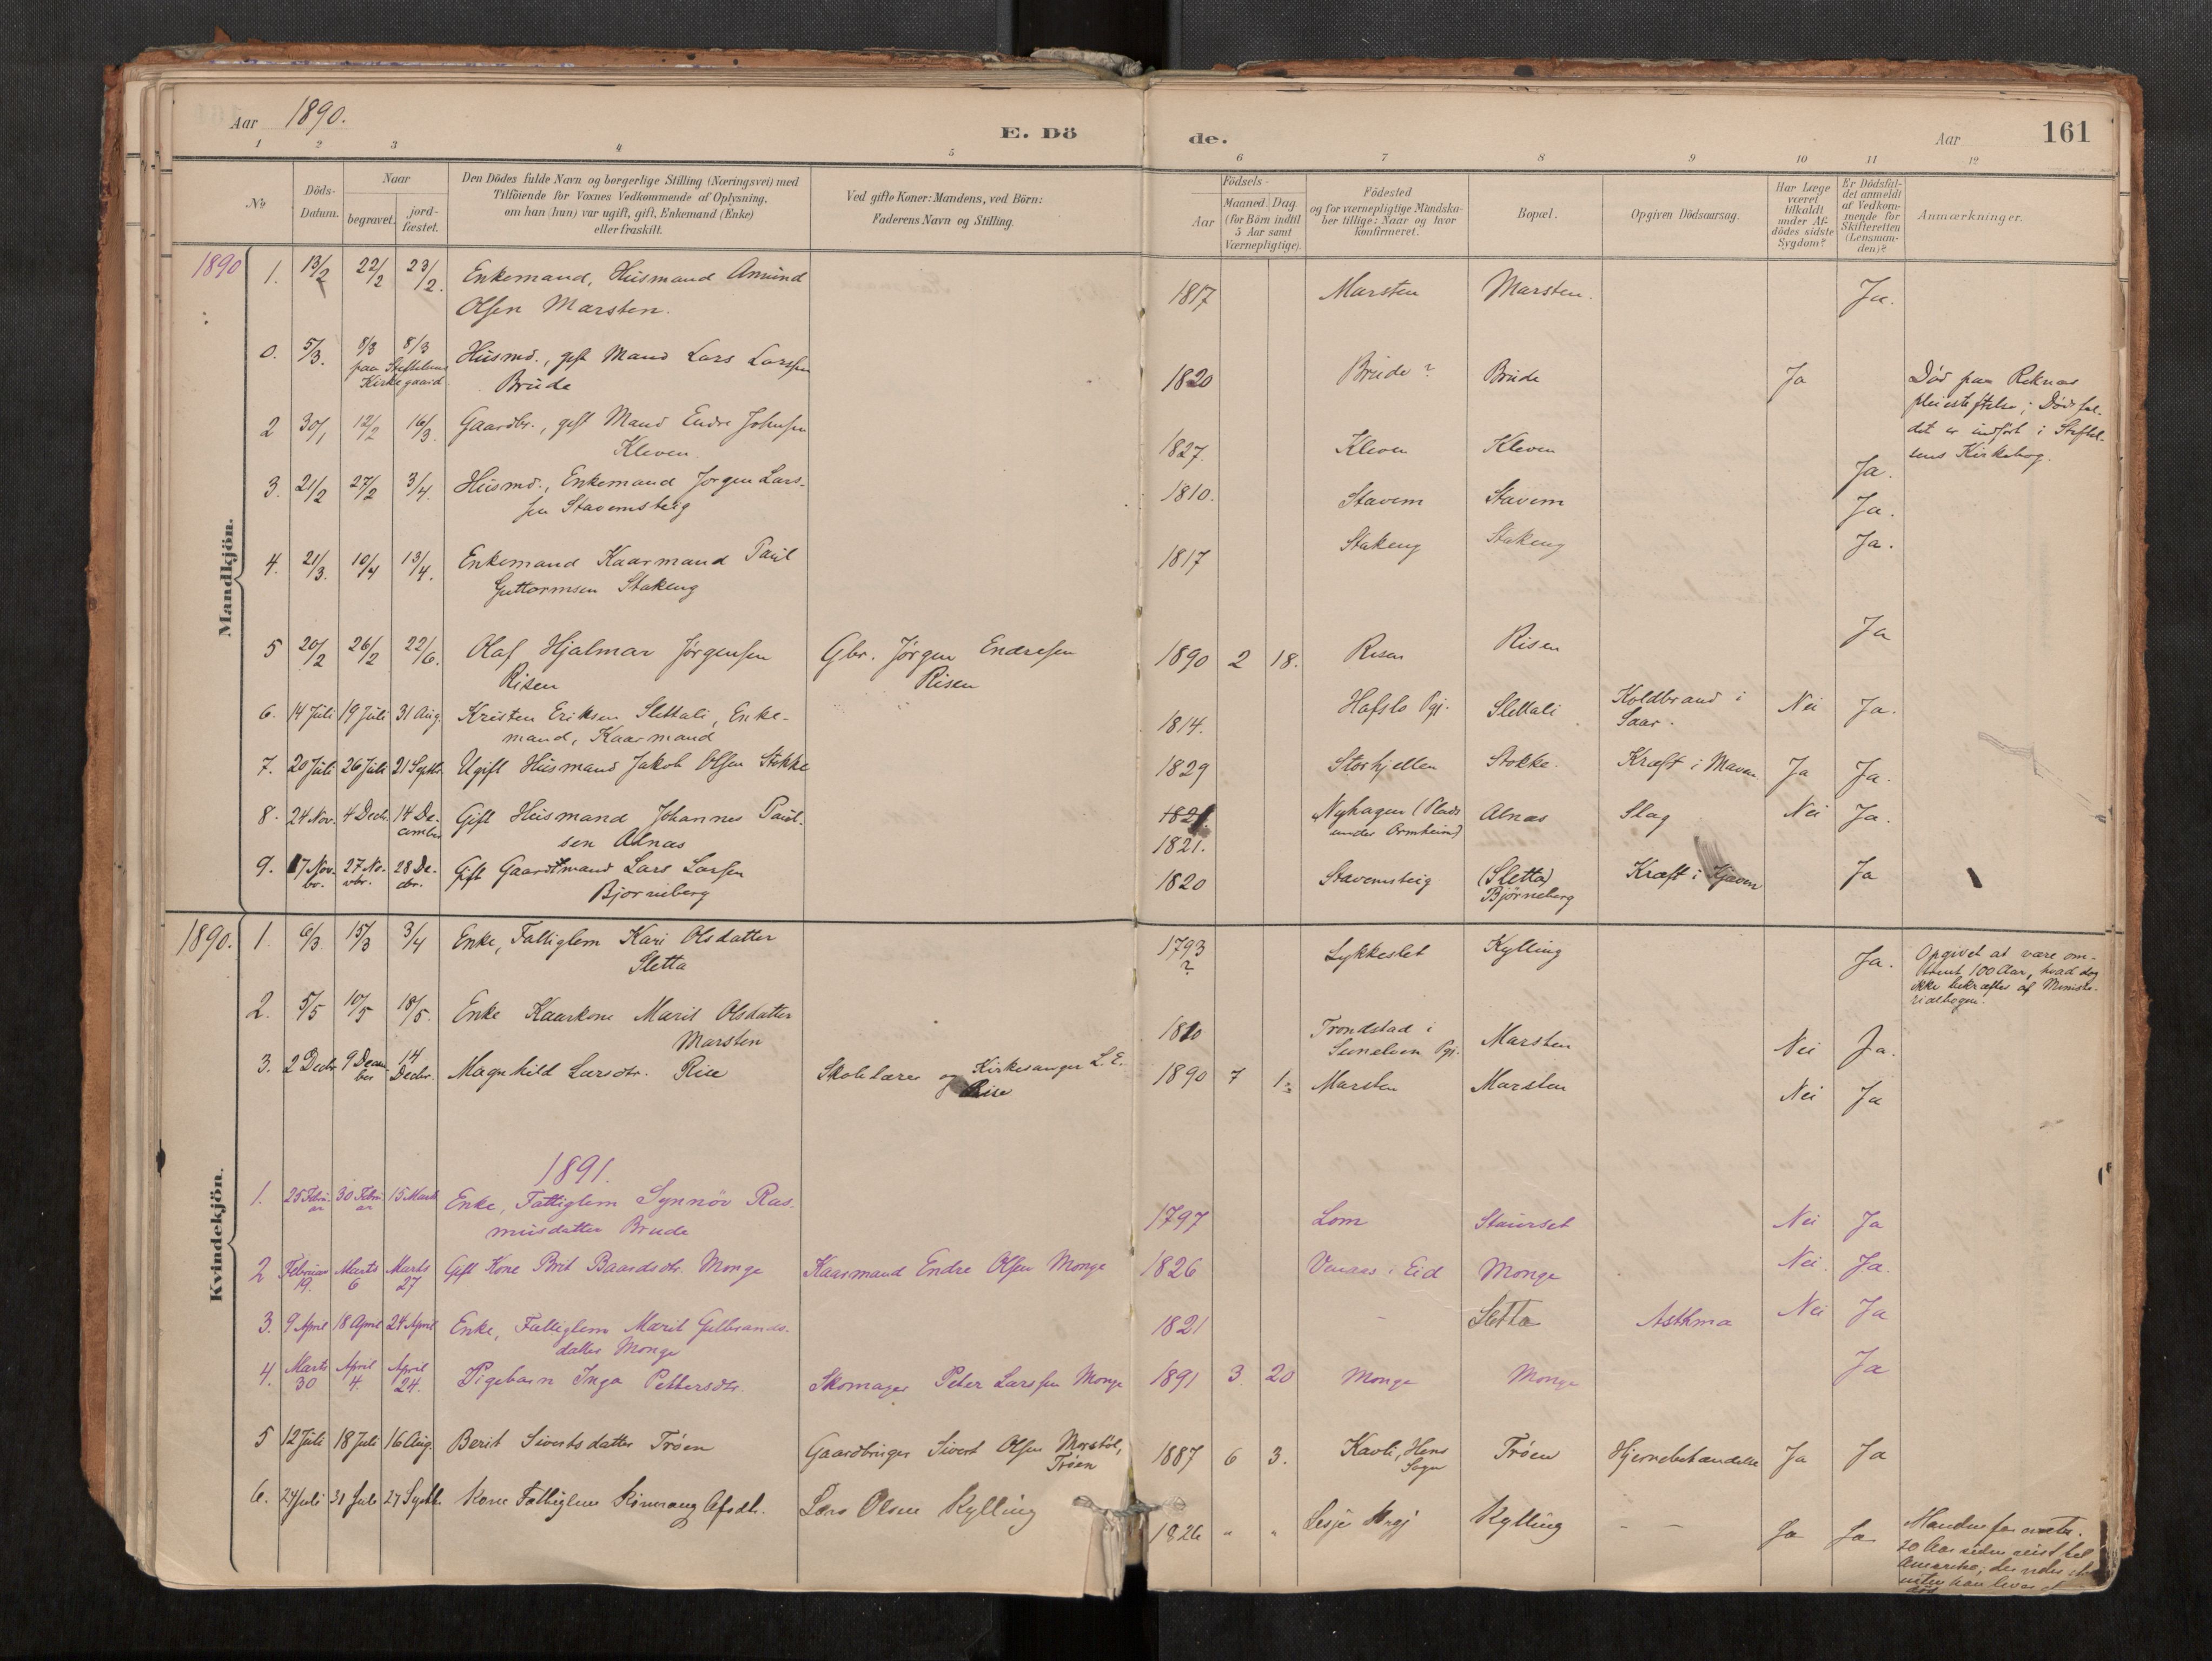 Aar 1890.
E. Dö de.
Aar
161
1 2 3 4 5 6 7 8 9 10 11 12
No
Döds-
Datum.
Naar
begravet.
jord-
fæstet.
Den Dödes fulde Navn og borgerlige Stilling (Næringsvei) med
Tilföiende for Voxnes Vedkommende af Oplysning,
om han (hun) var ugift, gift, Enkemand (Enke)
eller fraskilt.
Ved gifte Koner: Mandens, ved Börn:
Faderens Navn og Stilling.
Födsels-
Aar
Maaned. Dag.
(for Börn indtil
5 Aar samt
Værnepligtige).
Födested
og for værnepligtige Mandska-
ber tillige: Naar og hvor
konfirmeret.
Bopæl.
Opgiven Dödsaarsag.
Har Læge
været
tilkaldt
under Af-
dödes sidste
Sygdom?
Er Dödsfal-
det anmeldt
af Vedkom-
mende for
Skifteretten
(Lensman-
den)?
Anmærkninger.
Mandkjön.
1890 1. 13/2 22/2 23/2. Enkemand, Husmand Amund 1817 Marsten Marsten. Ja.
Olsen Marsten.
0. 5/3. 8/3 8/3 Husmd., gift Mand Lars Larssen 1820 Brude ? Brude Ja Död paa Reknæs
paa
Kirkegaard. Brude pleiestiftelse; Dödsfal-
det er indfört i Stiftel-
sens Kirkebog.
2 30/1 12/2 16/3. Gaardbr., gift Mand Endre Johnsen 1827. Kleven Kleven Ja.
Kleven.
3. 21/2 27/2 3/4. Husmd., Enkemand Jörgen Lars- 1810. Stavem Stavem Ja.
sen Stavemsteig
4. 21/3. 10/4 13/4. Enkemand Kaarmand Paul 1817 Stakeng Stakeng Ja.
Guttormsen Stakeng
5 20/2 26/2 22/6. Olaf Hjalmar Jørgensen Gbr. Jørgen Endresen 1890 2 18. Risen Risen Ja
Risen Risen
6. 14 Juli 19 Juli 31 Aug. Kristen Eriksen Slettali, Enke- 1814. Hafslo Pgj. Slettali Koldbrand i Nei Ja.
mand, Kaarmand Saar.
7. 20 Juli 26 Juli 21 Septb. Ugift Husmand Jakob Olsen Stokke 1829 Storhjellen Stokke. Kræft i Maven Ja Ja.
8. 24 Nov. 4 Decbr. 14 De- Gift Husmand Johannes Paul- 1821. Nyhagen (Plads Alnæs Slag Nei Ja.
cember sen Alnæs 1821. under Ormheim)
9. 17 Nov- 27 No- 28 De- Gift Gaardmand Lars Larsen 1820 Stavemsteig (Sletta) Kræft i Ja
br. vbr. cbr. Bjørneberg Bjørneberg
Kvindekjön.
1890. 1. 6/3. 15/3 3/4 Enke, Fattiglem Kari Olsdatter 1793 Lykkeslet Kylling Ja. Opgivet at være om-
Sletta ? trent 100 Aar, hvad dog
ikke bekræftes af Ministe-
rialbogen.
2. 5/5 10/5 18/5. Enke Kaarkone Marit Olsdatter 1810 Trondstad i Marsten Nei Ja.
Marsten Sunelven Pgj.
3. 2 Decbr 9 Decem 14 Magnhild Larsdtr. Rise Skolelærer og Kirkesanger L. E. 1890 7 1. Marsten Marsten Nei Ja
ber Decbr. Rise
1891.
1. 25 Febru 30 Febru 15 Marts Enke, Fattiglem Synnöv Ras- 1797 Lom Staurset Nei Ja
ar ar musdatter Brude
2 Februar Marts Marts Gift Kone Brit Baardsdtr. Monge Kaarmand Endre Olsen Monge 1826 Venaas i Eid Monge Nei. Ja.
19. 6 27
3. 9 April 18 April 24 April Enke, Fattiglem Marit Gulbrands- 1821 - Sletta Asthma Nei Ja
datter Monge
4. Marts April April Pigebarn Inga Pettersdtr. Skomager Peter Larssen Monge 1891 3 20 Monge Monge Ja
30 4. 24.
5 12 Juli 18 Juli 16 Aug. Berit Sivertsdatter Tröen Gaardbruger Sivert Olsen 1887 6 3. Kavli, Hens Tröen Ja Ja
Tröen Sogn
6. 24 Juli 31 Juli 27 Septb. Kone Fattiglem Lars Olsen Kylling 1826 " " Lesje Kylling - - Ja Ja Manden for
20 Aar siden reist til
Amerika;